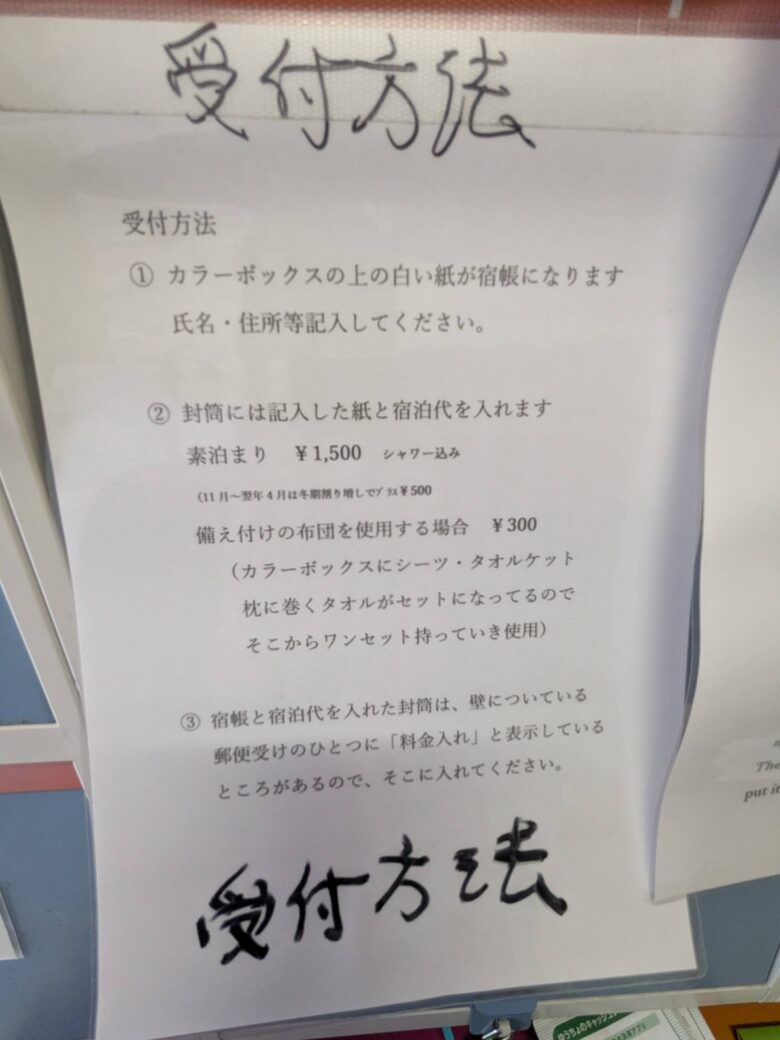 受付方法
受付方法
① カラーボックスの上の白い紙が宿帳になります
氏名・住所等記入してください。
② 封筒には記入した紙と宿泊代を入れます
素泊まり ￥1,500 シャワー込み
（11月～翌年4月は冬期割り増しでﾌﾟﾗｽ￥500
備え付けの布団を使用する場合 ￥300
（カラーボックスにシーツ・タオルケット
枕に巻くタオルがセットになってるので
そこからワンセット持っていき使用）
③ 宿帳と宿泊代を入れた封筒は、壁についている
郵便受けのひとつに「料金入れ」と表示している
ところがあるので、そこに入れてください。
受付方法
The
put it
ゆうちょのキャッシュ